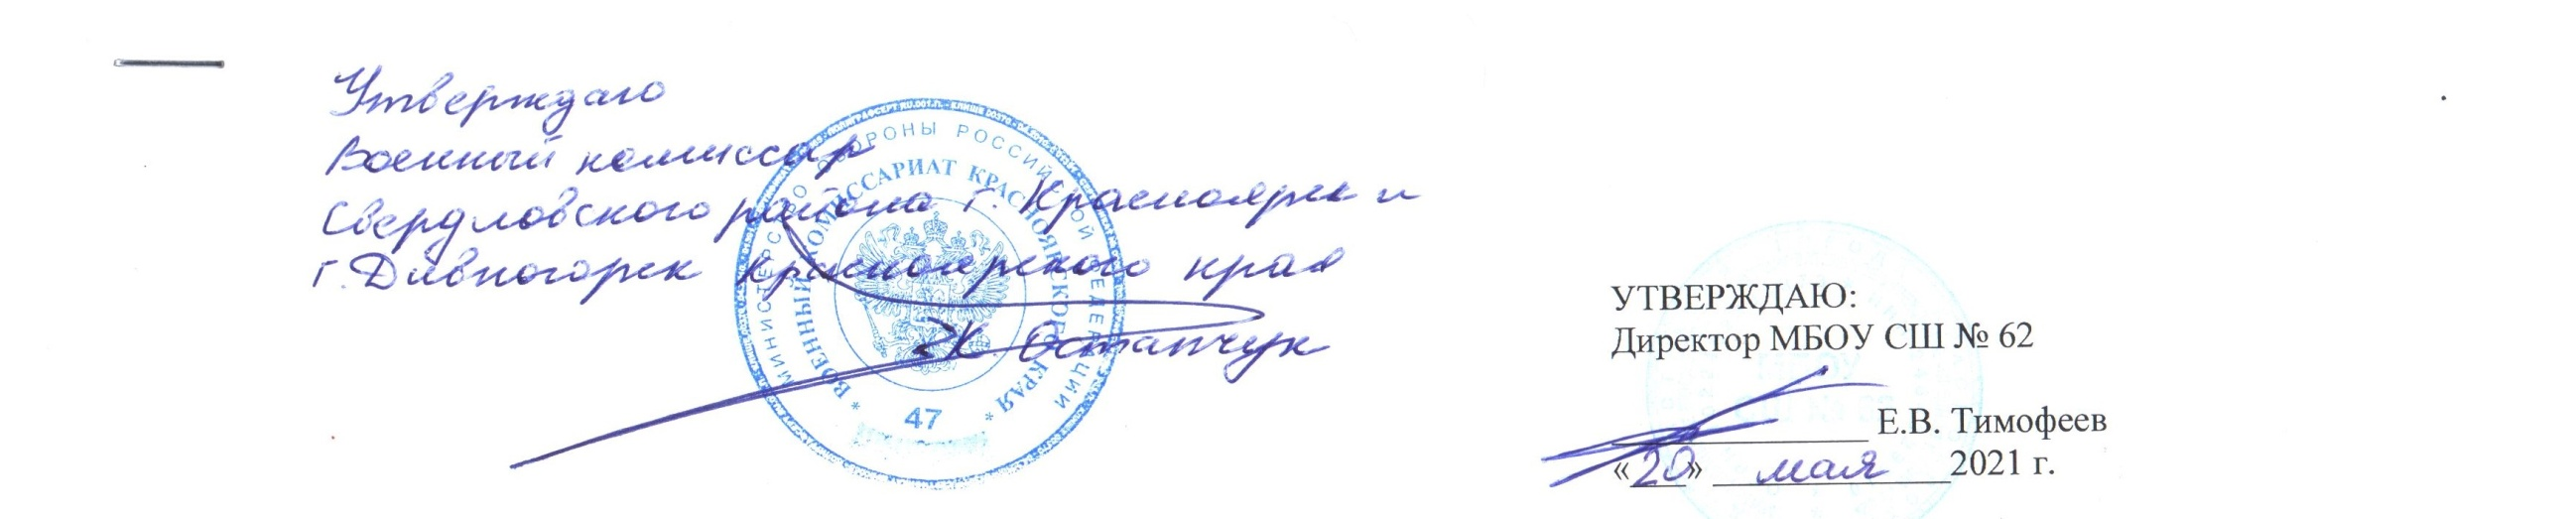 Утверждаю
Военный комиссар
Свердловского района г. Красноярск и
г. Дивногорск Красноярского края
Ж. Остапчук
МИНИСТЕРСТВО ОБОРОНЫ РОССИЙСКОЙ ФЕДЕРАЦИИ
* ВОЕННЫЙ КОМИССАРИАТ КРАСНОЯРСКОГО КРАЯ *
47
УТВЕРЖДАЮ:
Директор МБОУ СШ № 62
Е.В. Тимофеев
«20» мая 2021 г.